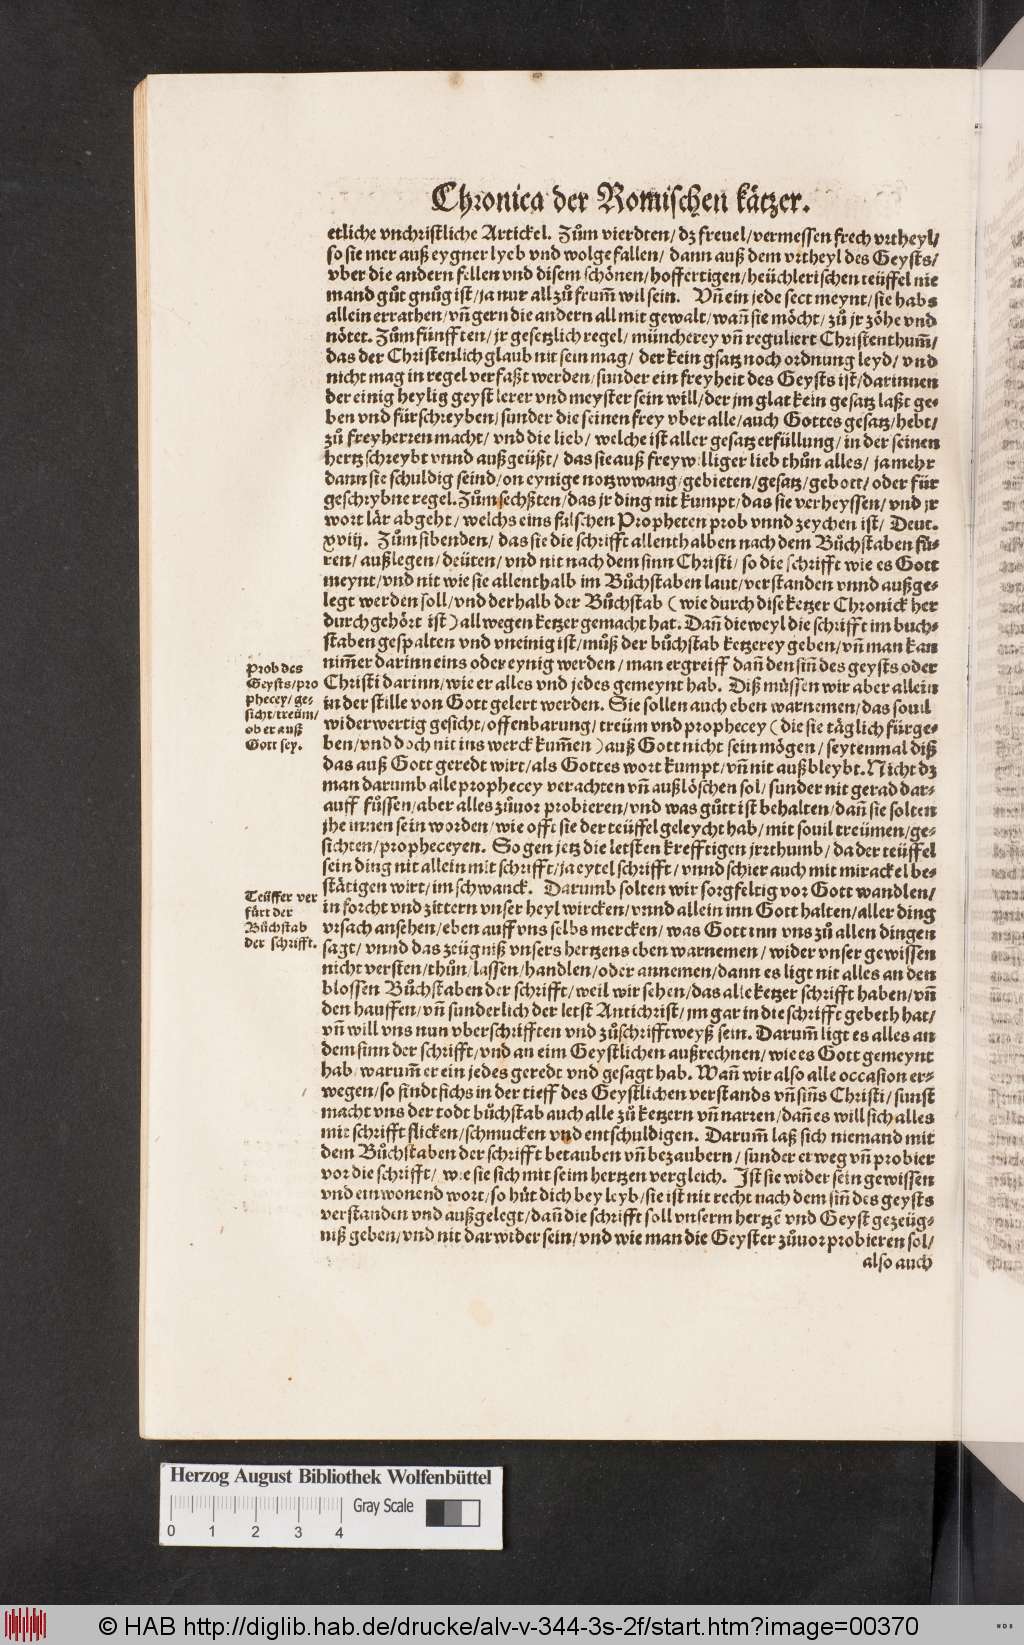 Chronica der Romischen kätzer.
etliche vnchristliche Artickel. Zům vierdten/ dz freuel/vermessen frech vrtheyl/
so sie mer auß eygner lyeb vnd wolgefallen/ dann auß dem vrtheyl des Geysts/
vber die andern fellen vnd disem schönen/hoffertigen/heüchlerischen teüffel nie
mand gůt gnůg ist/ja nur all zů frum̄ wil sein. Vn̄ ein jede sect meynt/sie habs
allein errathen/vn̄ gern die andern all mit gewalt/wan̄ sie möcht/ zů jr zöhe vnd
nötet. Zům fünfften/jr gesetzlich regel/müncherey vn̄ reguliert Christenthum̄/
das der Christenlich glaub nit sein mag/ der kein gsatz noch ordnung leyd/ vnd
nicht mag in regel verfaßt werden/sunder ein freyheit des Geysts ist/darinnen
der einig heylig geyst lerer vnd meyster sein will/der jm glat kein gesatz laßt ge-
ben vnd fürschreyben/sunder die seinen frey vber alle/auch Gottes gesatz/hebt/
zů freyherren macht/ vnd die lieb/ welche ist aller gesatz erfüllung/in der seinen
hertz schreybt vnnd außgeüßt/ das sie auß freywilliger lieb thůn alles/ ja mehr
dann sie schuldig seind/on eynige notzwwang/gebieten/gesatz/gebott/ oder für
geschrybne regel. Zům sechßten/das jr ding nit kumpt/das sie verheyssen/ vnd jr
wort lär abgeht/ welchs eins falschen Propheten prob vnnd zeychen ist/ Deut.
xviij. Zům sibenden/ das sie die schrifft allenthalben nach dem Bůchstaben fü-
ren/ außlegen/deüten/ vnd nit nach dem sinn Christi/ so die schrifft wie es Gott
meynt/vnd nit wie sie allenthalb im Bůchstaben laut/verstanden vnnd außge-
legt werden soll/vnd derhalb der Bůchstab ( wie durch dise ketzer Chronick her
durch gehört ist) allwegen ketzer gemacht hat. Dan̄ dieweyl die schrifft im buch-
staben gespalten vnd vneinig ist/můß der bůchstab ketzerey geben/vn̄ man kan
nim̄er darinn eins oder eynig werden/ man ergreiff dan̄ den sin̄ des geysts oder
Christi darinn/wie er alles vnd jedes gemeynt hab. Diß müssen wir aber allein
in der stille von Gott gelert werden. Sie sollen auch eben warnemen/das souil
widerwertig gesicht/offenbarung/treüm vnd prophecey (die sie täglich fürge-
ben/vnd doch nit ins werck kum̄en) auß Gott nicht sein mögen/ seytenmal diß
das auß Gott geredt wirt/als Gottes wort kumpt/vn̄ nit außbleybt. Nicht dz
man darumb alle prophecey verachten vn̄ außlöschen sol/sunder nit gerad dar-
auff fůssen/aber alles zůuor probieren/vnd was gůtt ist behalten/dan̄ sie solten
jhe innen sein worden/wie offt sie der teüffel geleycht hab/mit souil treümen/ge-
sichten/propheceyen. So gen jetz die letsten krefftigen jrrthumb/da der teüffel
sein ding nit allein mit schrifft/ja eytel schrifft/vnnd schier auch mit mirackel be-
stätigen wirt/im schwanck. Darumb solten wir sorgfeltig vor Gott wandlen/
in forcht vnd zittern vnser heyl wircken/vnnd allein inn Gott halten/aller ding
vrsach ansehen/eben auff vns selbs mercken/ was Gott inn vns zů allen dingen
sagt/ vnnd das zeügniß vnsers hertzens eben warnemen/ wider vnser gewissen
nicht versten/thůn/lassen/handlen/oder annemen/dann es ligt nit alles an den
blossen Bůchstaben der schrifft/weil wir sehen/das alle ketzer schrifft haben/vn̄
den hauffen/vn̄ sunderlich der letst Antichrist/jm gar in die schrifft gebeth hat/
vn̄ will vns nun vberschrifften vnd zůschrifftweyß sein. Darum̄ ligt es alles an
dem sinn der schrifft/vnd an eim Geystlichen außrechnen/wie es Gott gemeynt
hab/warum̄ er ein jedes geredt vnd gesagt hab. Wan̄ wir also alle occasion er-
wegen/so findt sichs in der tieff des Geystlichen verstands vn̄ sin̄s Christi/sunst
macht vns der todt bůchstab auch alle zů ketzern vn̄ narren/dan̄ es will sich alles
mit schrifft flicken/schmucken vnd entschuldigen. Darum̄ laß sich niemand mit
dem Bůchstaben der schrifft betauben vn̄ bezaubern/ sunder erweg vn̄ probier
vor die schrifft/ wie sie sich mit seim hertzen vergleich. Ist sie wider sein gewissen
vnd einwonend wort/so hůt dich bey leyb/sie ist nit recht nach dem sin̄ des geysts
verstanden vnd außgelegt/dan̄ die schrifft soll vnserm hertzē vnd Geyst gezeüg-
niß geben/vnd nit darwider sein/vnd wie man die Geyster zůuor probieren sol/
also auch
Prob des
Geysts/pro
phecey/ge-
sicht/treüm/
ob er auß
Gott sey.
Teüffer ver
fürt der
Bůchstab
der schrifft.
Herzog August Bibliothek Wolfenbüttel
Gray Scale
0 1 2 3 4
© HAB http://diglib.hab.de/drucke/alv-v-344-3s-2f/start.htm?image=00370